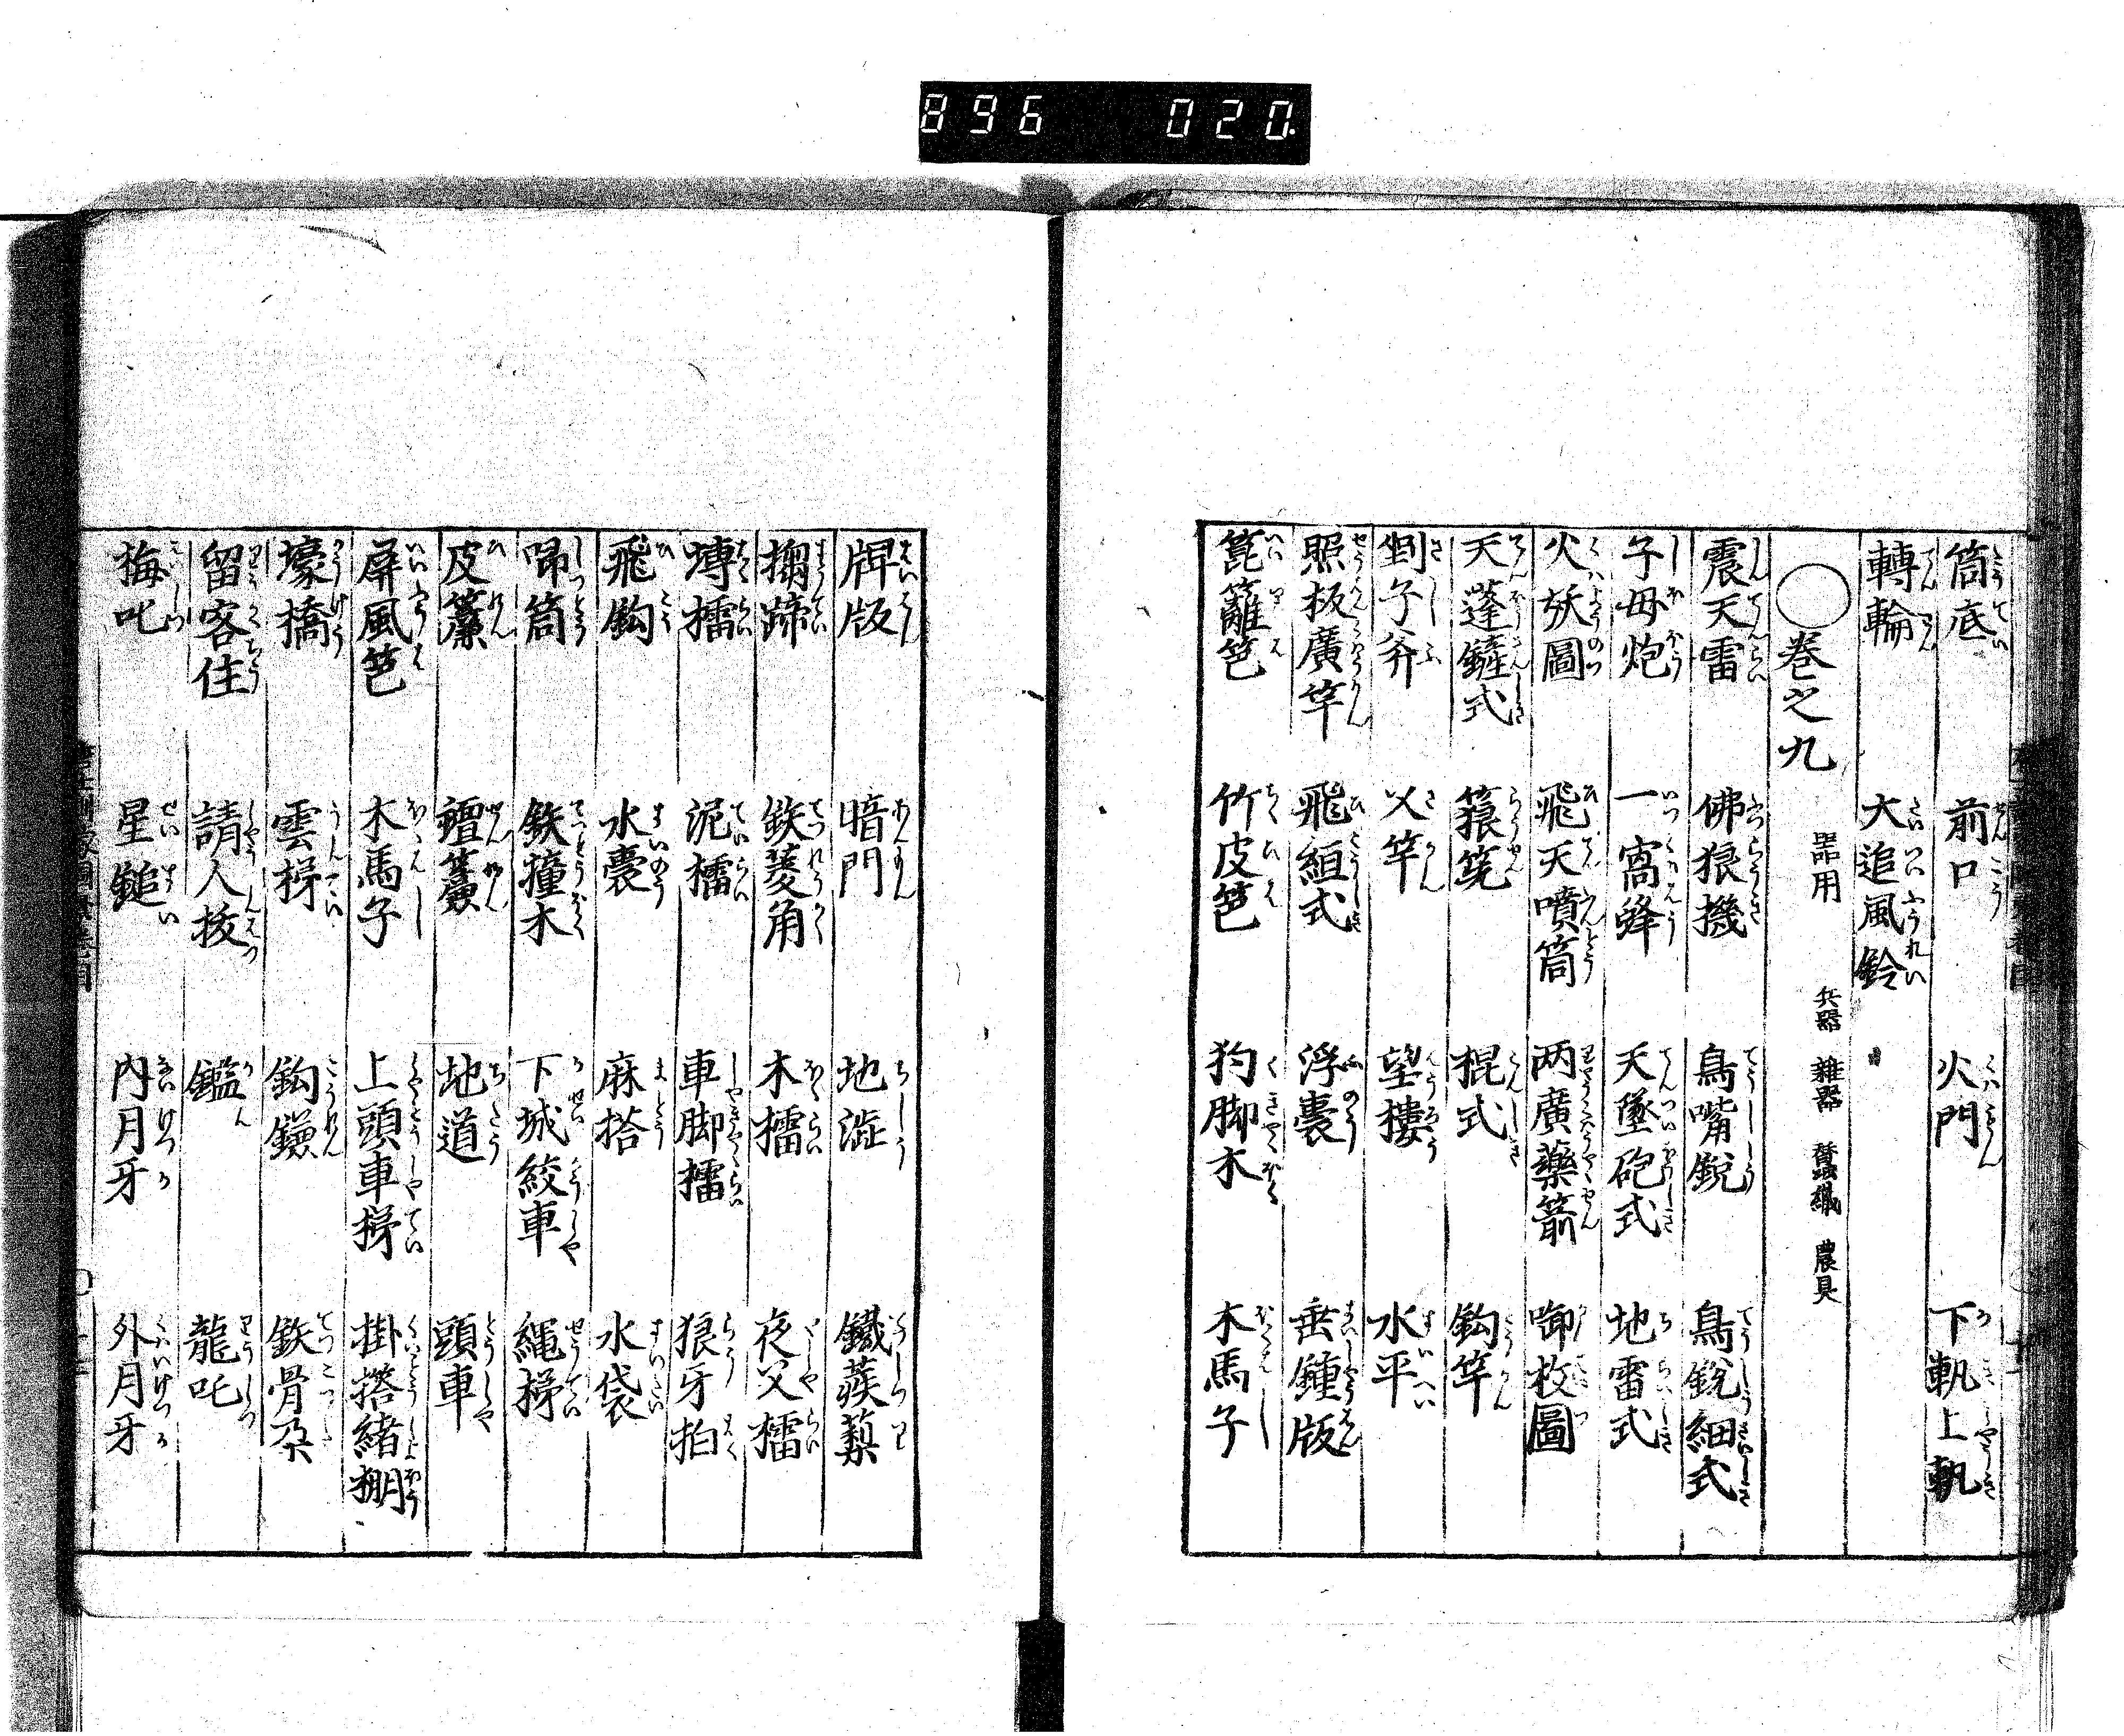 896 020
筒底 前口 火門 下軓上軓
轉輪 大追風鈴
○巻之九 器用 兵器 雜器 蠶織 農具
震天雷 佛狼機 鳥嘴銃 鳥銃細式
子母炮 一窩蜂 天墜砲式 地雷式
火妖圖 飛天噴筒 两廣藥箭 啣枚圖
天蓬鏟式 筤筅 棍式 鈎竿
剉子斧 乂竿 望樓 水平
照板廣竿 飛絙式 浮嚢 垂鍾版
篦籬笆 竹皮笆 狗脚木 木馬子
牌版 暗門 地澁 鐵蒺蔾
搊蹄 鉄菱角 木擂 夜乂擂
塼擂 泥擂 車脚擂 狼牙拍
飛鈎 水嚢 麻搭 水袋
喞筒 鉄撞木 下城絞車 縄梯
皮簾 氊簾 地道 頭車
屏風笆 木馬子 上頭車梯 掛搭緒棚
壕橋 雲梯 鈎鎌 鉄骨朶
留客住 請人拔 鑑 龍吒
梅叱 星鎚 内月牙 外月牙